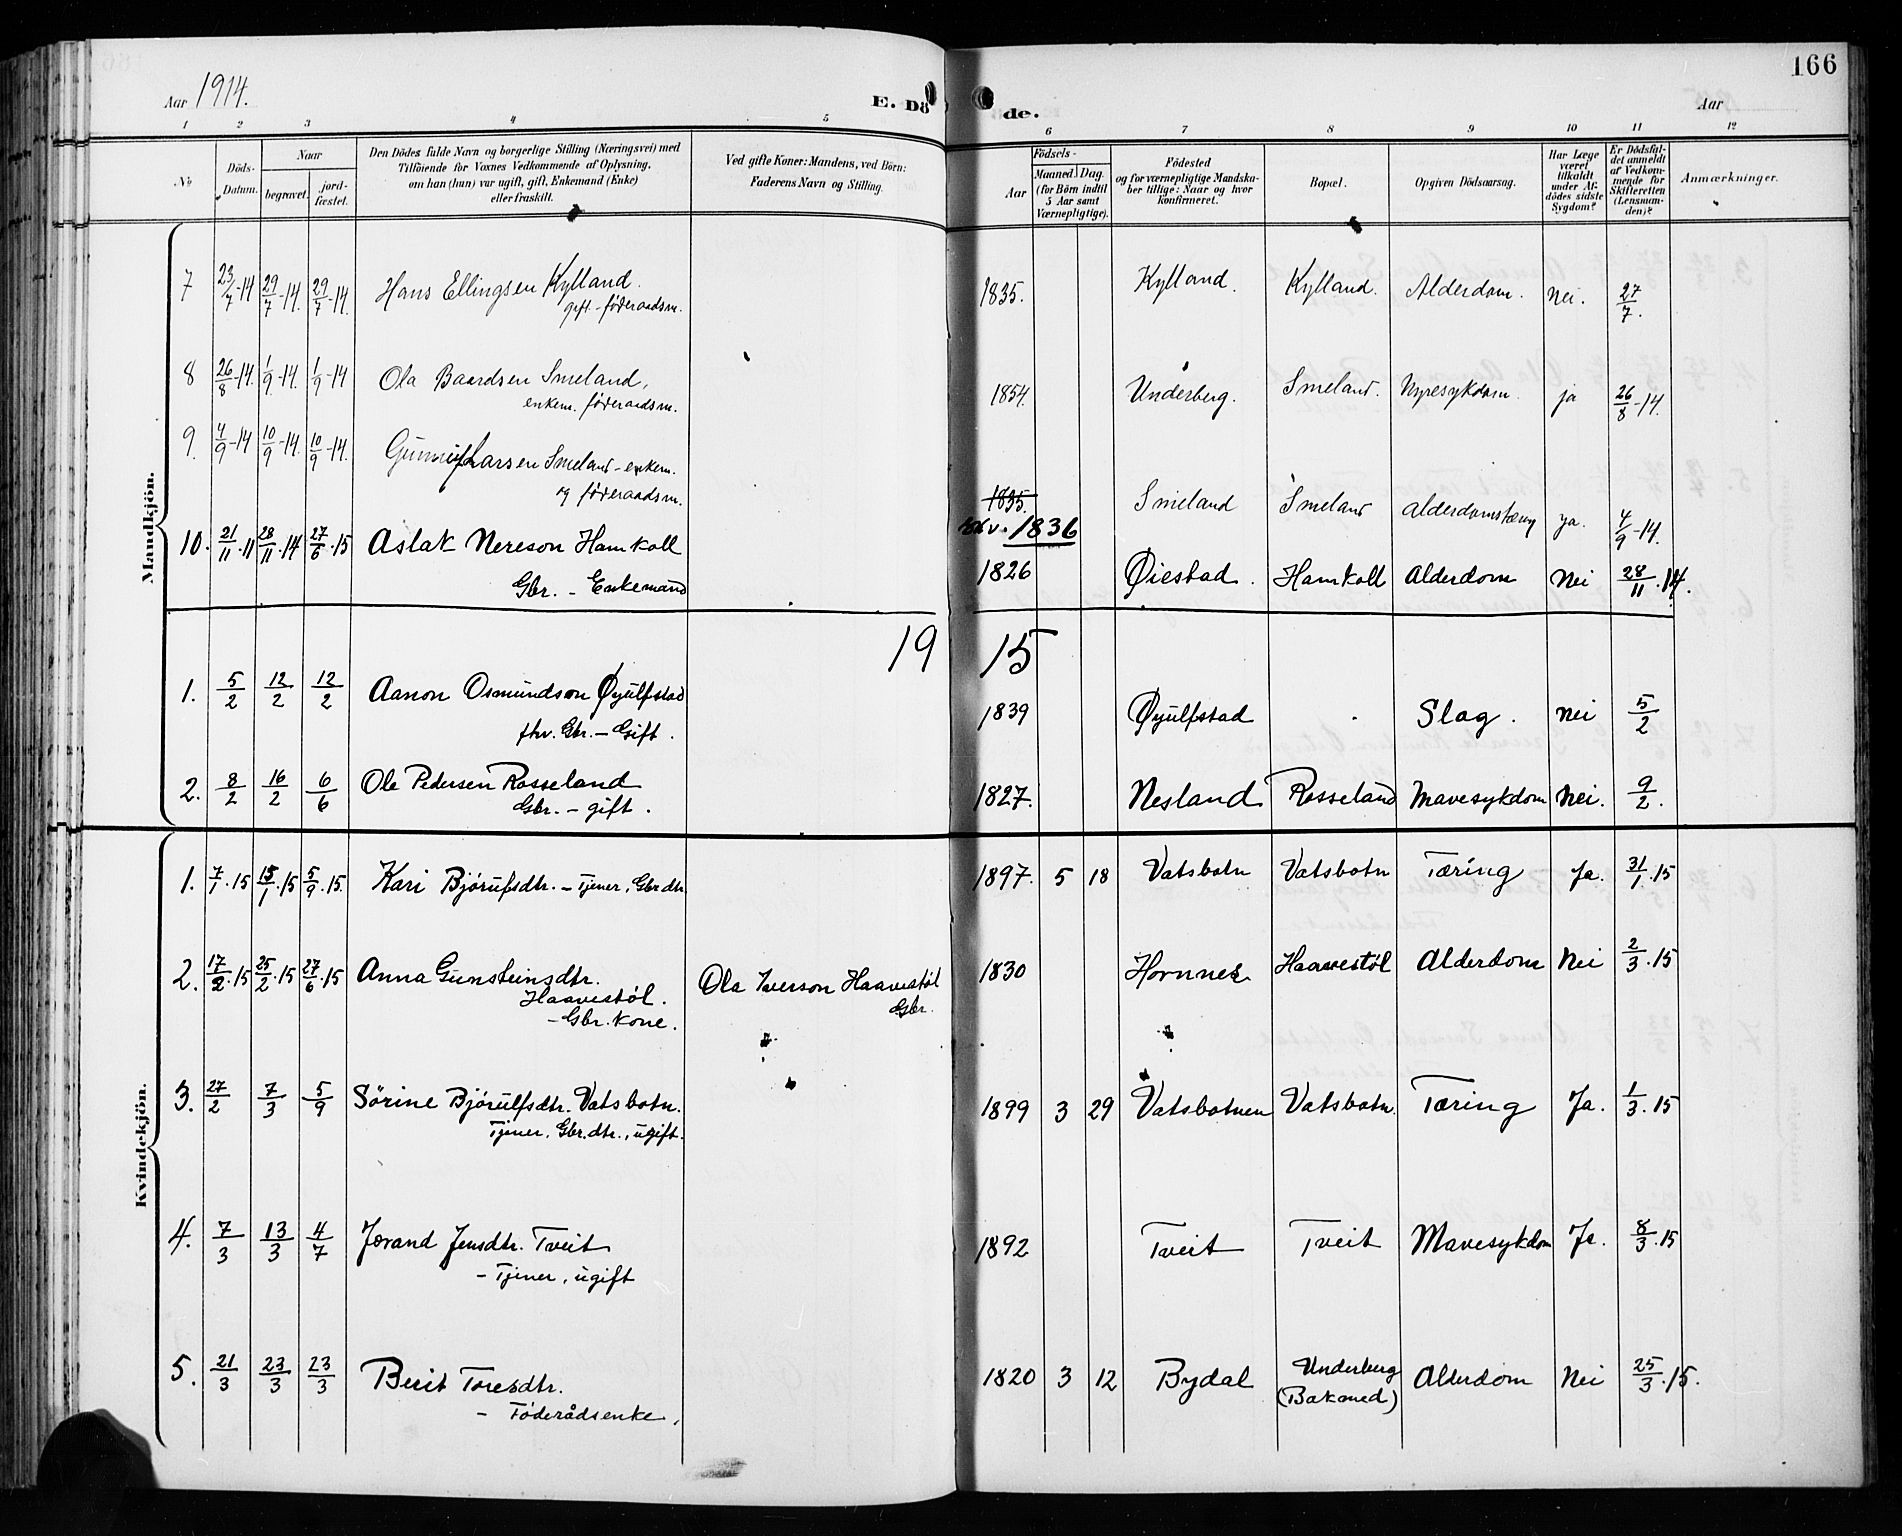 166
Aar 1914.
E. Dö de.
Aar
1 2 3 4 5 6 7 8 9 10 11 12
No
Döds-Datum.
Naar
begravet.
jordfæstet.
Den Dödes fulde Navn og borgerlige Stilling (Næringsvei) med
Tilföiende for Voxnes Vedkommende af Oplysning,
om han (hun) var ugift, gift, Enkemand (Enke)
eller fraskilt.
Ved gifte Koner: Mandens, ved Börn:
Faderens Navn og Stilling.
Födsels-
Aar
Maaned. Dag.
(for Börn indtil
5 Aar samt
Værnepligtige).
Födested
og for værnepligtige Mandskaber
tillige: Naar og hvor
konfirmeret.
Bopæl.
Opgiven Dödsaarsag.
Har Læge
været
tilkaldt
under Afdödes
sidste
Sygdom?
Er Dödsfaldet
anmeldt
af Vedkommende
for
Skifteretten
(Lensmanden)?
Anmærkninger.
Mandkjön.
7 23/7-14 29/7-14. 29/7-14. Hans Ellingsen Kylland. 1835. Kylland. Kylland. Alderdom. Nei. 27/7.
gift - föderaadsm.
8 26/8-14. 1/9-14. 1/9-14 Ola Baardsen Smeland, 1854. Underberg. Smeland. Nyresykdom. ja 26/8-14.
enkem. föderaadsm.
9. 4/9-14 10/9-14. 10/9-14. Larsen Smeland - enkem. 1835. Smeland Smeland Alderdomstæring ja. 4/9-14.
og föderaadsm.
1836
10. 21/11·11 28/11·14 27/6·15 Aslak Nereson Hamkoll 1826 Øiestad. Hamkoll Alderdom Nei 28/11·14.
Gbr. - Enkemand
19 15
1. 5/2 12/2 12/2 Aanon Osmundson Øyulfstad 1839 Øyulfstad . Slag. Nei 5/2
fhv. Gbr. - Gift.
2. 8/2 16/2 6/6 Ole Pedersen Rosseland 1827. Nesland Rosseland Mavesykdom Nei. 9/2.
Gbr. - gift.
Kvindekjön.
1. 7/1·15 15/1·15 5/9·15. Kari Bjørufsdtr. - Tjener, Gbr.dtr 1897. 5 18 Vatsbotn Vatsbotn Tæring Ja. 31/1·15
2. 17/2·15 25/2·15 27/6·15 Anna Gunsteinsdtr. Ola Iverson Haavestøl 1830 Hornnes Haavestøl Alderdom Nei 2/3·15
Haavestøl. Gbr.
- Gbr. kone.
3. 27/2 7/3 5/9 Sørine Bjørulfsdtr. Vatsbotn. 1899 3 29 Vatsbotnen Vatsbotn. Tæring Ja. 1/3·15
Tjener, Gbr.dtr., ugift.
4. 7/3 13/3 4/7 Jorand Jensdtr. Tveit 1892 Tveit Tveit Mavesykdom Ja. 8/3·15
- Tjener, ugift
5. 21/3 23/3 23/3 Berit Toresdtr. 1820 3 12 Bydal Underberg Alderdom Nei 25/3·15.
- Føderådsenke. (Bakomed)